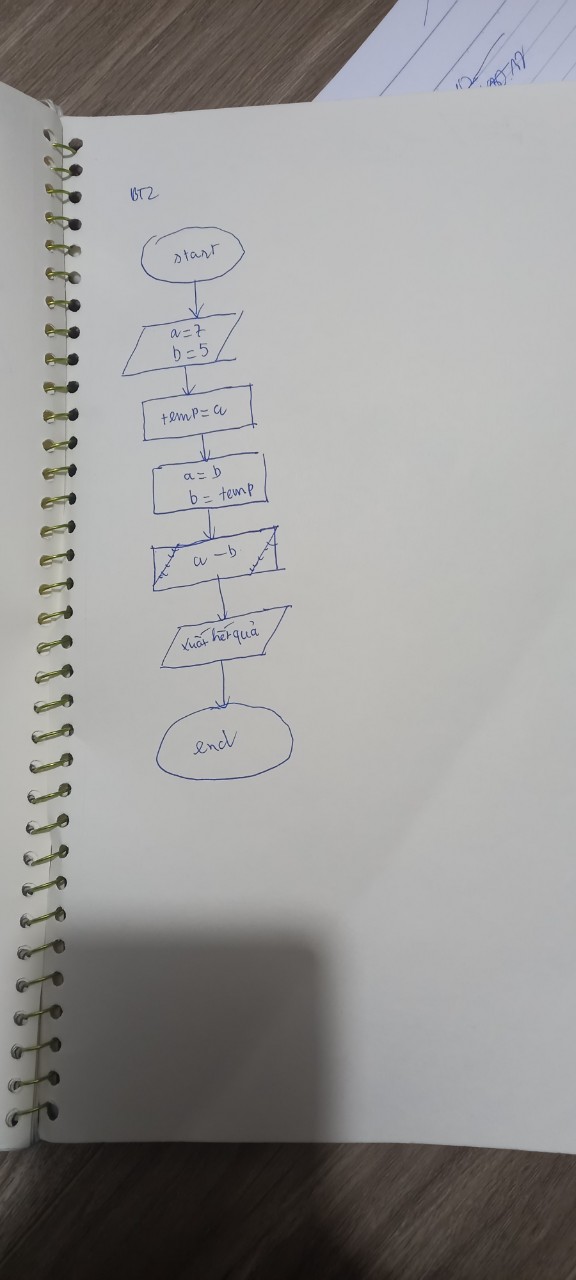 BT2
start
a=7
b=5
temp=a
a=b
b=temp
a-b
xuất kết quả
end